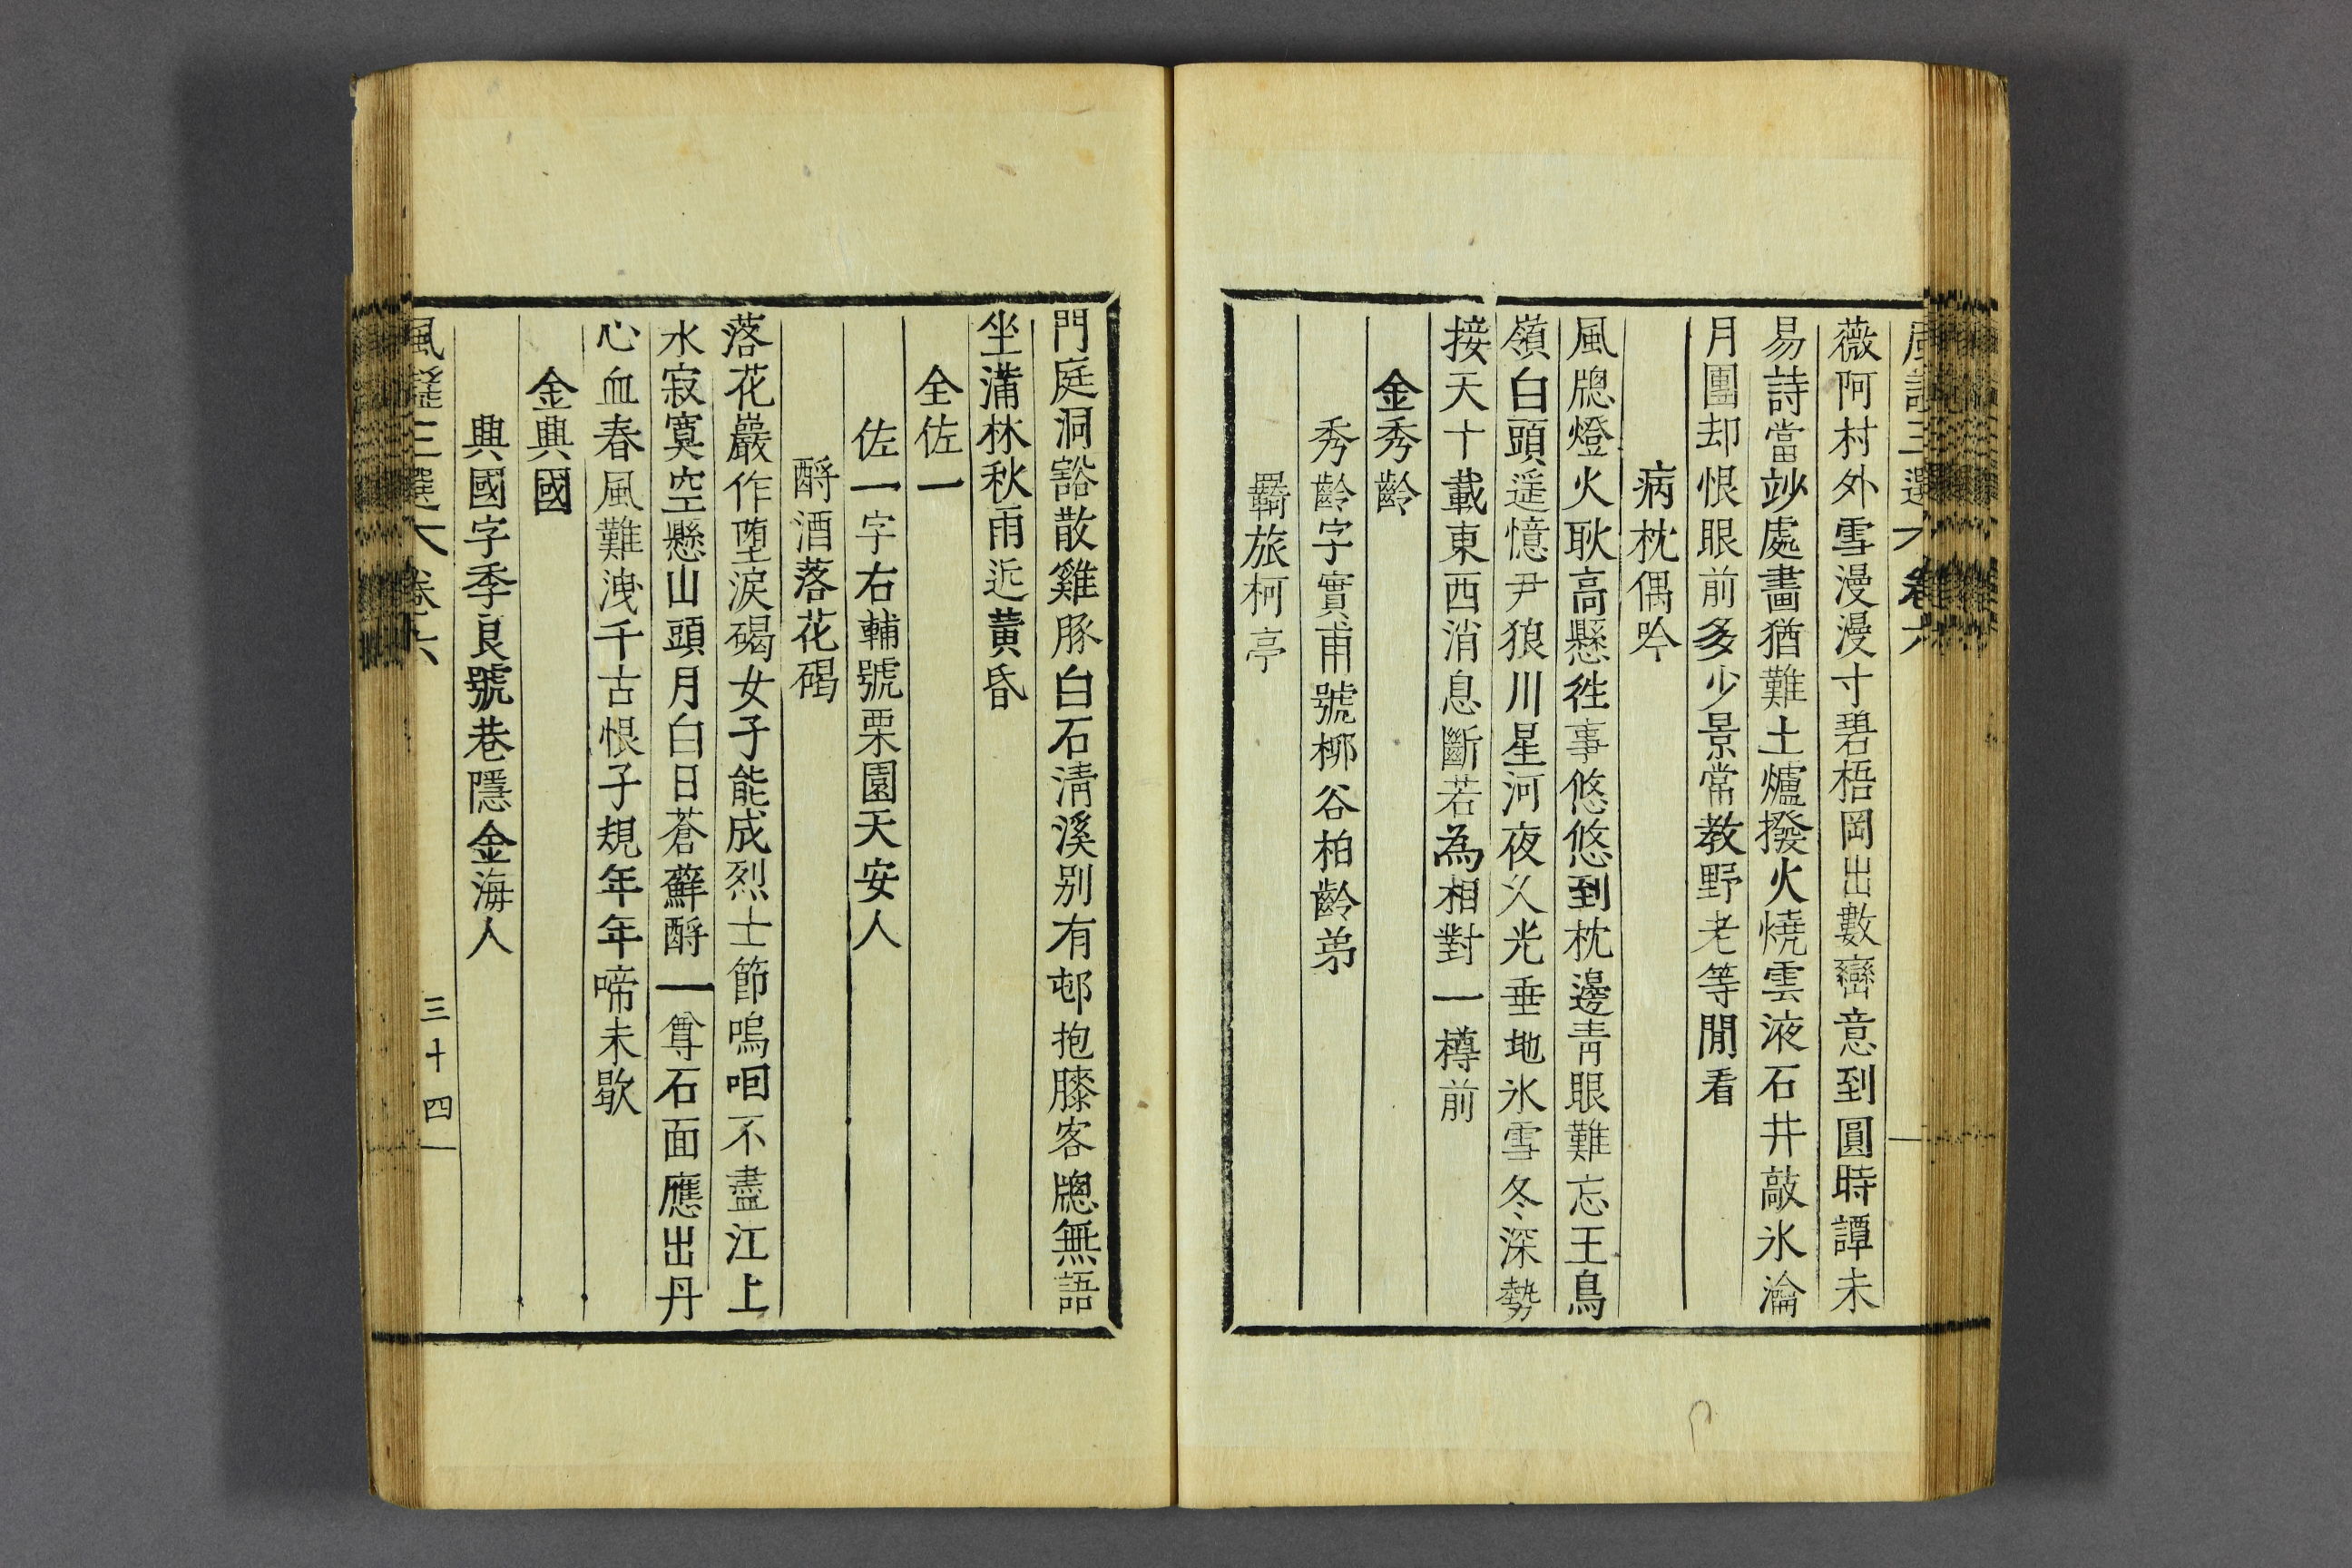 風謠三選 卷六
薇阿村外雪漫漫寸碧梧岡出數巒意到圓時譚未
易詩當玅處畵猶難土爐撥火燒雲液石井敲氷瀹
月團却恨眼前多少景常教野老等閒看
病枕偶吟
風牕燈火耿高懸徃事悠悠到枕邊靑眼難忘王鳥
嶺白頭遥憶尹狼川星河夜久光垂地氷雪冬深勢
接天十載東西消息斷若為相對一樽前
金秀齡
秀齡字實甫號栁谷柏齡弟
羇旅柯亭
門庭洞豁散雞豚白石淸溪别有邨抱膝客牕無語
坐蒲林秋雨近黃昏
全佐一
佐一字右輔號栗園天安人
酹酒落花碣
落花巖作墮淚碣女子能成烈士節嗚咽不盡江上
水寂寞空懸山頭月白日蒼蘚酹一尊石面應出丹
心血春風難洩千古恨子規年年啼未歇
金典國
典國字季良號巷隱金海人
風謠三選 卷六
三十四